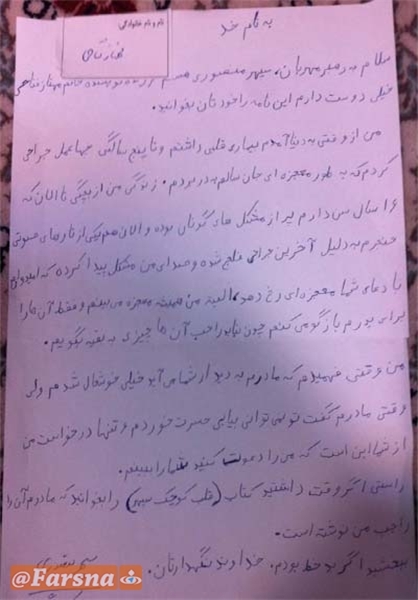 به نام خدا
نام و نام خانوادگی:
سلام به رهبر مهربان، سپهر منصوری هستم فرزند نویسنده خانم مهناز فتاحی
خیلی دوست دارم این نامه را خودتان بخوانید.
من از وقتی به دنیا آمدم بیماری قلبی داشتم و تا پنج سالگی عمل جراحی
کردم که به طور معجزه ای جان سالم به در بردم. زندگی من از بچگی تا الان که
۱۶ سال سن دارم پر از مشکل های گوناگون بوده و الان هم یکی از تارهای صوتی
حنجرم به دلیل آخرین جراحی فلج شده و صدای من مشکل پیدا کرده که امیدوارم
با دعای شما معجزه ای رخ دهد، البته من همیشه معجزه می بینم و فقط آن ها را
برای پدرم بازگو می کنم چون نباید راجب آن ها چیزی به بقیه بگویم.
من وقتی فهمیدم که مادرم به دیدار شما می آید خیلی خوشحال شدم ولی
وقتی مادرم گفت تو نمی توانی بیایی حسرت خوردم و تنها درخواست من
از شما این است که من را دعوت کنید شما را ببینم.
راستی اگر وقت داشتید کتاب (قلب کوچک سپهر) را بخوانید که مادرم آن را
راجب من نوشته است.
ببخشید اگر بد خط بودم. خداوند نگهدارتان.
@Farsna